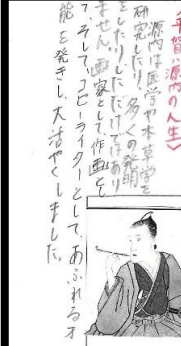 平賀源内の人生》
源内は医学や本草学を
研究したり、多くの発明
をしたりしただけではあり
ません。画家として作画をし
て、そして、コピーライターとして、あふれる才
能を発きし、大活やくしました。